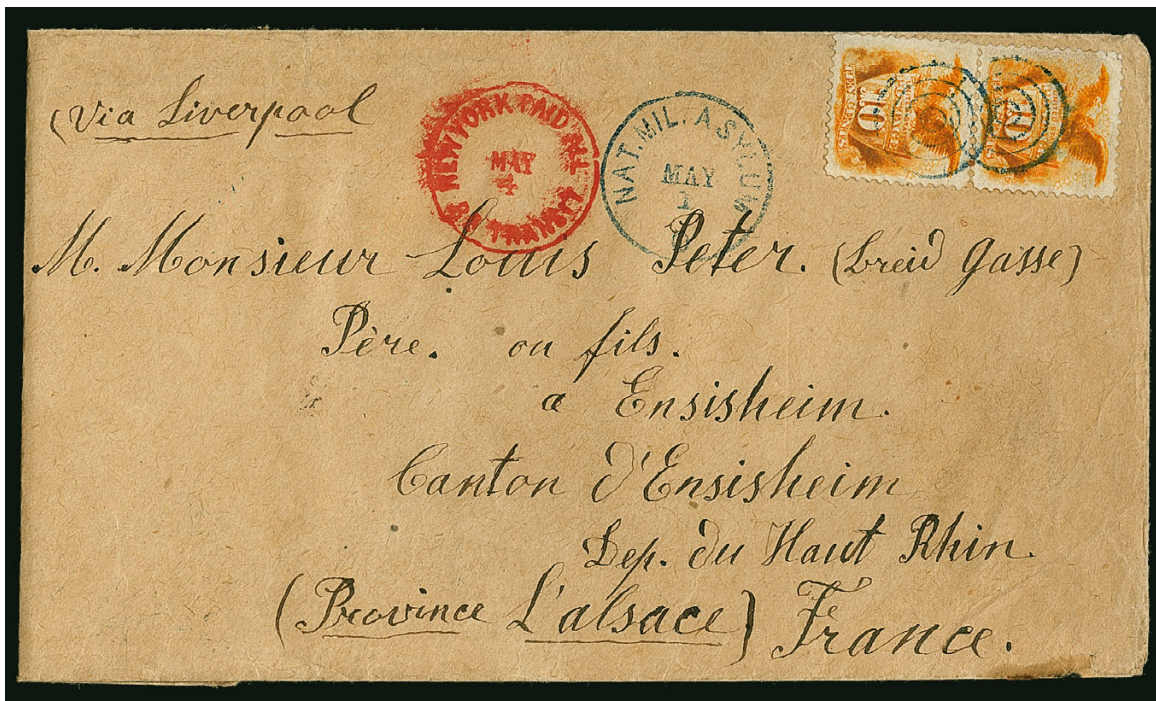 Via Liverpool
NEW YORK PAID ALL
BR TRANSIT
MAY
4
NAT. MIL. ASYLUM
MAY
1
10
10
M. Monsieur Louis Peter. (breid gasse)
Père. ou fils.
a Ensisheim.
Canton d'Ensisheim
Dep. du Haut Rhin.
(Province L'alsace) France.